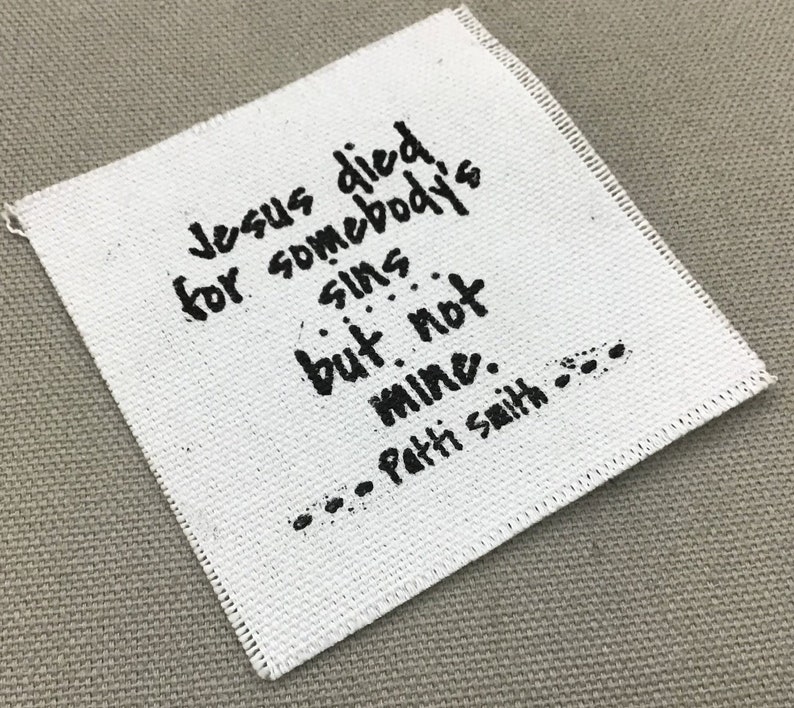 Jesus died
for somebody's
sins
......
but not
mine.
--- Patti Smith ---